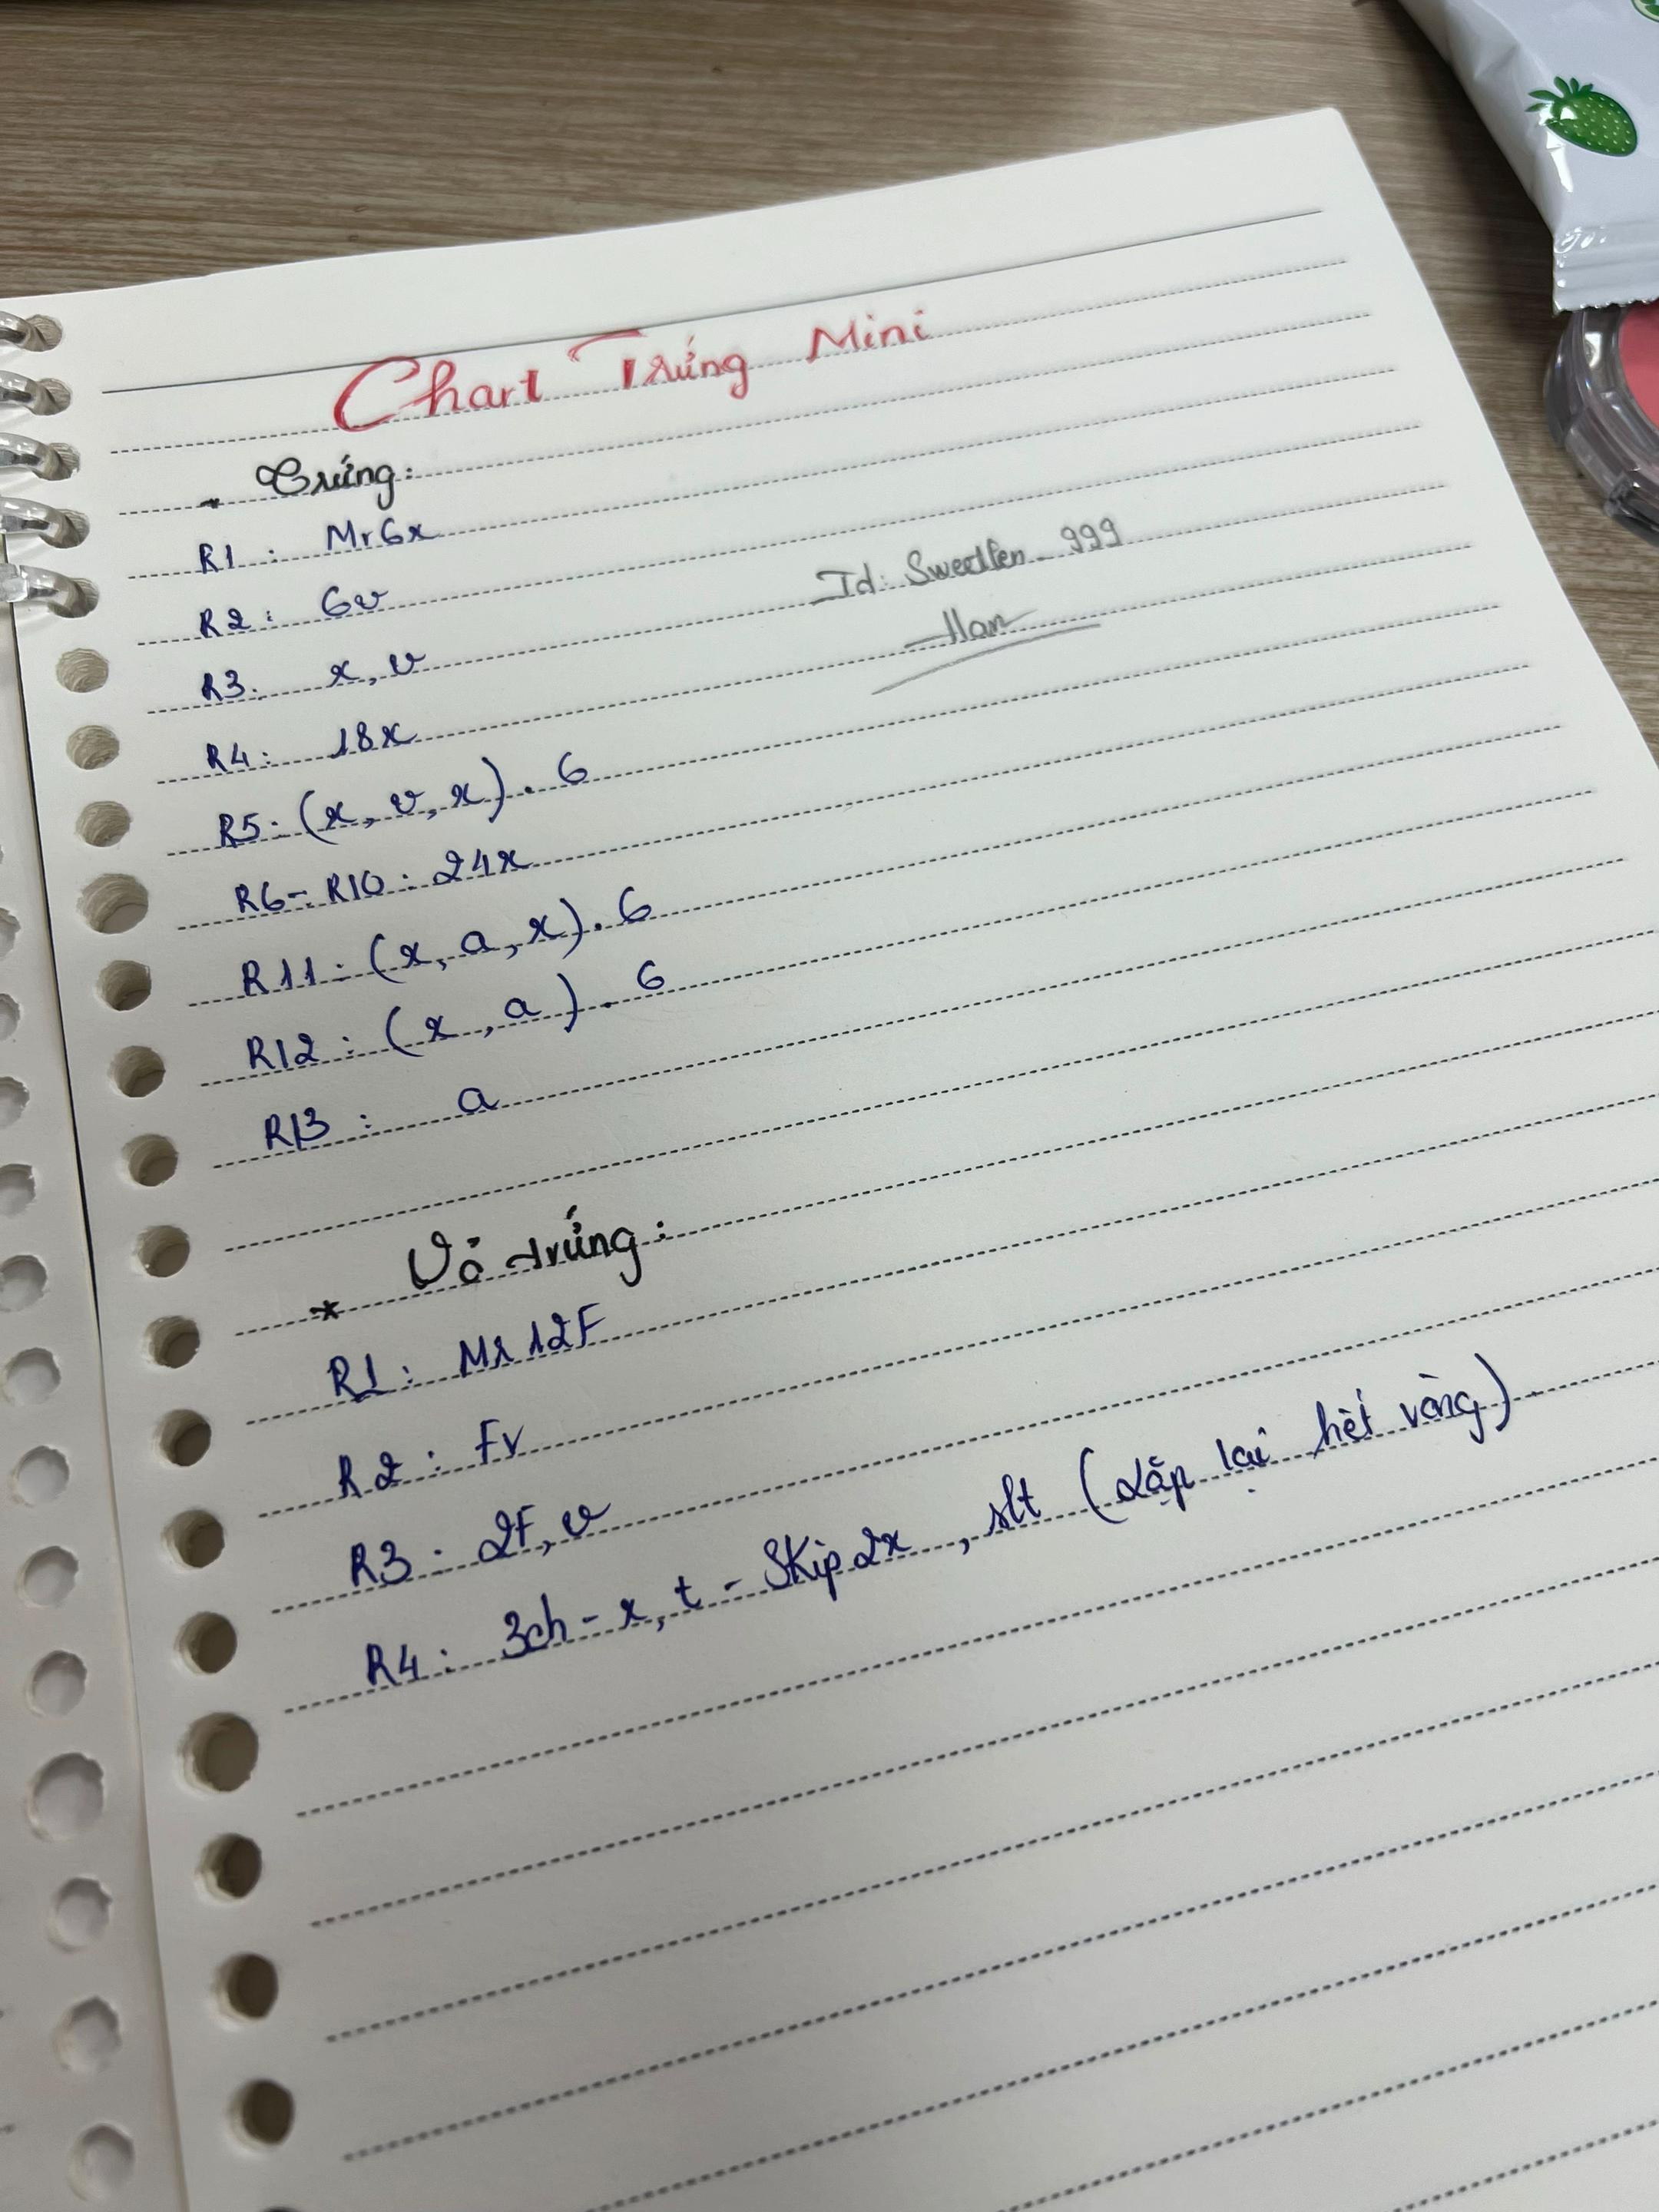 Chart Trứng Mini
* Trứng:
R1 : Mr6x
R2 : 6v
R3. x, v
R4 : 18x
Id: Sweetlen_999
Han
R5. (x, v, x) . 6
R6 - R10 : 24x
R11 : (x, a, x) . 6
R12 : (x, a) . 6
R13 : a
* Vỏ trứng :
R1 : Mr 12F
R2 : Fv
R3 . 2F, v
R4 : 3ch - x, t - Skip 2x , slt (Lặp lại hết vòng)